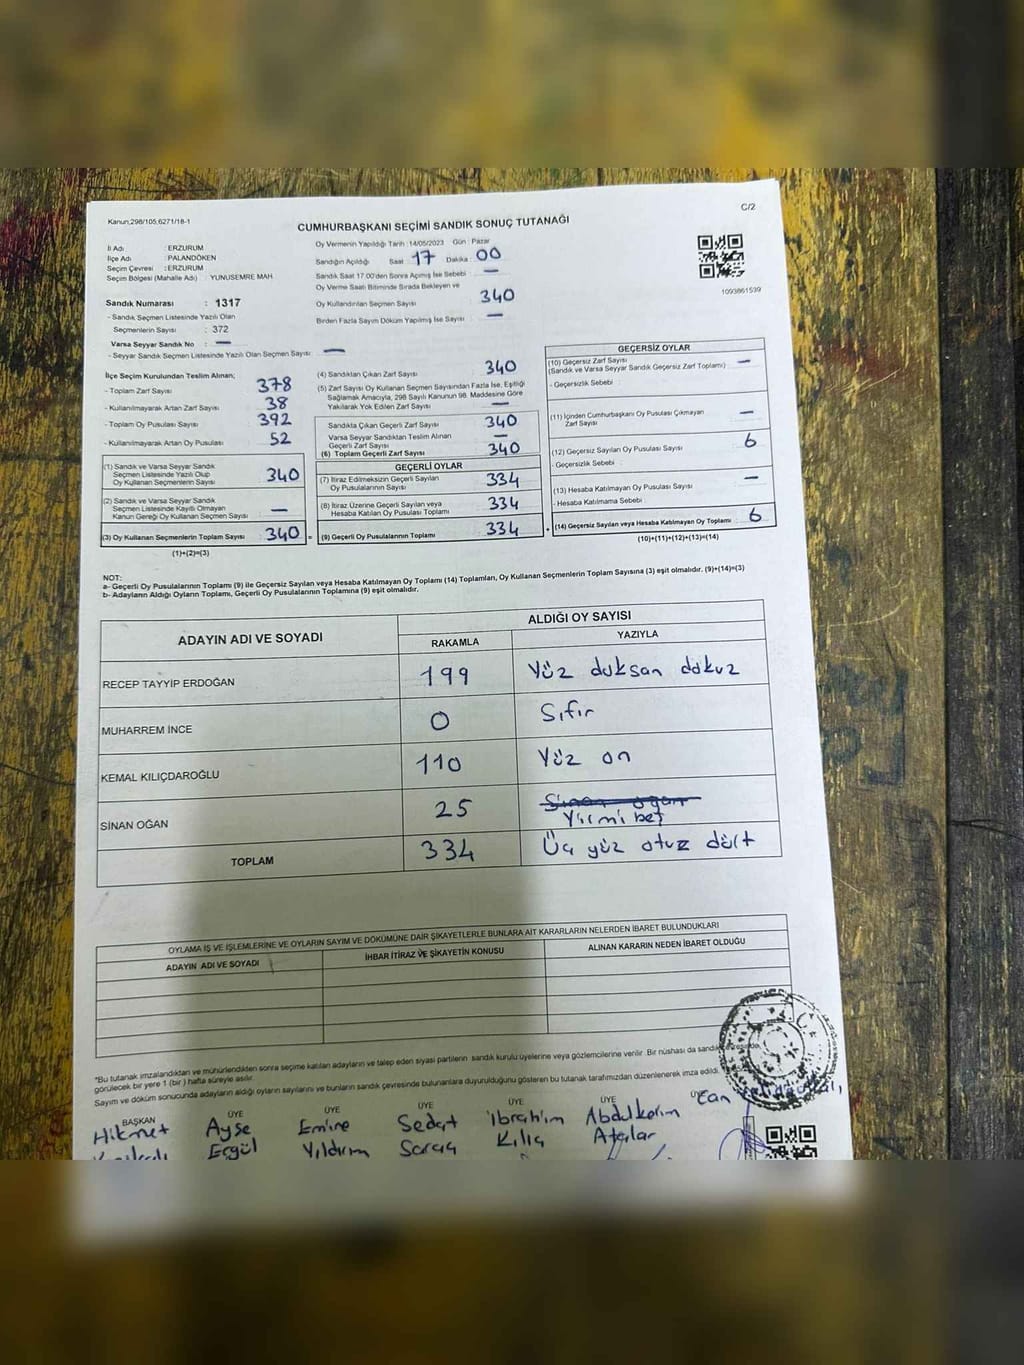 Kanun;298/105,6271/18-1
C/2
CUMHURBAŞKANI SEÇİMİ SANDIK SONUÇ TUTANAĞI
İl Adı : ERZURUM
İlçe Adı : PALANDÖKEN
Seçim Çevresi : ERZURUM
Seçim Bölgesi (Mahalle Adı) : YUNUSEMRE MAH
Sandık Numarası : 1317
- Sandık Seçmen Listesinde Yazılı Olan
Seçmenlerin Sayısı : 372
Varsa Seyyar Sandık No : —
- Seyyar Sandık Seçmen Listesinde Yazılı Olan Seçmen Sayısı : —
Oy Vermenin Yapıldığı Tarih :14/05/2023 Gün : Pazar
Sandığın Açıldığı Saat : 17 Dakika : 00
Sandık Saat 17.00'den Sonra Açılmış İse Sebebi : —
Oy Verme Saati Bitiminde Sırada Bekleyen ve
Oy Kullandırılan Seçmen Sayısı 340
Birden Fazla Sayım Döküm Yapılmış İse Sayısı : —
1093861599
İlçe Seçim Kurulundan Teslim Alınan;
- Toplam Zarf Sayısı : 378
- Kullanılmayarak Artan Zarf Sayısı : 38
- Toplam Oy Pusulası Sayısı : 392
- Kullanılmayarak Artan Oy Pusulası : 52
(1) Sandık ve Varsa Seyyar Sandık
Seçmen Listesinde Yazılı Olup
Oy Kullanan Seçmenlerin Sayısı 340
(2) Sandık ve Varsa Seyyar Sandık
Seçmen Listesinde Kayıtlı Olmayan
Kanun Gereği Oy Kullanan Seçmen Sayısı —
(3) Oy Kullanan Seçmenlerin Toplam Sayısı 340 =
(1)+(2)=(3)
(4) Sandıktan Çıkan Zarf Sayısı : 340
(5) Zarf Sayısı Oy Kullanan Seçmen Sayısından Fazla İse, Eşitliği
Sağlamak Amacıyla, 298 Sayılı Kanunun 98. Maddesine Göre
Yakılarak Yok Edilen Zarf Sayısı : —
Sandıkta Çıkan Geçerli Zarf Sayısı 340
Varsa Seyyar Sandıktan Teslim Alınan
Geçerli Zarf Sayısı —
(6) Toplam Geçerli Zarf Sayısı 340
GEÇERLİ OYLAR
(7) İtiraz Edilmeksizin Geçerli Sayılan
Oy Pusulalarının Sayısı 334
(8) İtiraz Üzerine Geçerli Sayılan veya
Hesaba Katılan Oy Pusulası Toplamı 334
(9) Geçerli Oy Pusulalarının Toplamı 334 +
GEÇERSİZ OYLAR
(10) Geçersiz Zarf Sayısı —
(Sandık ve Varsa Seyyar Sandık Geçersiz Zarf Toplamı)
- Geçersizlik Sebebi :
(11) İçinden Cumhurbaşkanı Oy Pusulası Çıkmayan
Zarf Sayısı —
(12) Geçersiz Sayılan Oy Pusulası Sayısı 6
- Geçersizlik Sebebi :
(13) Hesaba Katılmayan Oy Pusulası Sayısı —
- Hesaba Katılmama Sebebi :
(14) Geçersiz Sayılan veya Hesaba Katılmayan Oy Toplamı 6
(10)+(11)+(12)+(13)=(14)
NOT:
a- Geçerli Oy Pusulalarının Toplamı (9) ile Geçersiz Sayılan veya Hesaba Katılmayan Oy Toplamı (14) Toplamları, Oy Kullanan Seçmenlerin Toplam Sayısına (3) eşit olmalıdır. (9)+(14)=(3)
b- Adayların Aldığı Oyların Toplamı, Geçerli Oy Pusulalarının Toplamına (9) eşit olmalıdır.
ADAYIN ADI VE SOYADI
ALDIĞI OY SAYISI
RAKAMLA YAZIYLA
RECEP TAYYİP ERDOĞAN 199 Yüz doksan dokuz
MUHARREM İNCE 0 Sıfır
KEMAL KILIÇDAROĞLU 110 Yüz on
SİNAN OĞAN 25 Sinan ogan
Yirmi beş
TOPLAM 334 Üç yüz otuz dört
OYLAMA İŞ VE İŞLEMLERİNE VE OYLARIN SAYIM VE DÖKÜMÜNE DAİR ŞİKAYETLERLE BUNLARA AİT KARARLARIN NELERDEN İBARET BULUNDUKLARI
ADAYIN ADI VE SOYADI İHBAR İTİRAZ VE ŞİKAYETİN KONUSU ALINAN KARARIN NEDEN İBARET OLDUĞU
*Bu tutanak imzalandıktan ve mühürlendikten sonra seçime katılan adayların ve talep eden siyasi partilerin sandık kurulu üyelerine veya gözlemcilerine verilir. Bir nüshası da
görülecek bir yere 1 (bir) hafta süreyle asılır.
Sayım ve döküm sonucunda adayların aldığı oyların sayılarını ve bunların sandık çevresinde bulunanlara duyurulduğunu gösteren bu tutanak tarafımızdan düzenlenerek imza edildi.
BAŞKAN ÜYE ÜYE ÜYE ÜYE ÜYE ÜYE
Hikmet Ayşe Emine Sedat İbrahim Abdulkerim
Ergül Yıldırım Saraç Kılıç